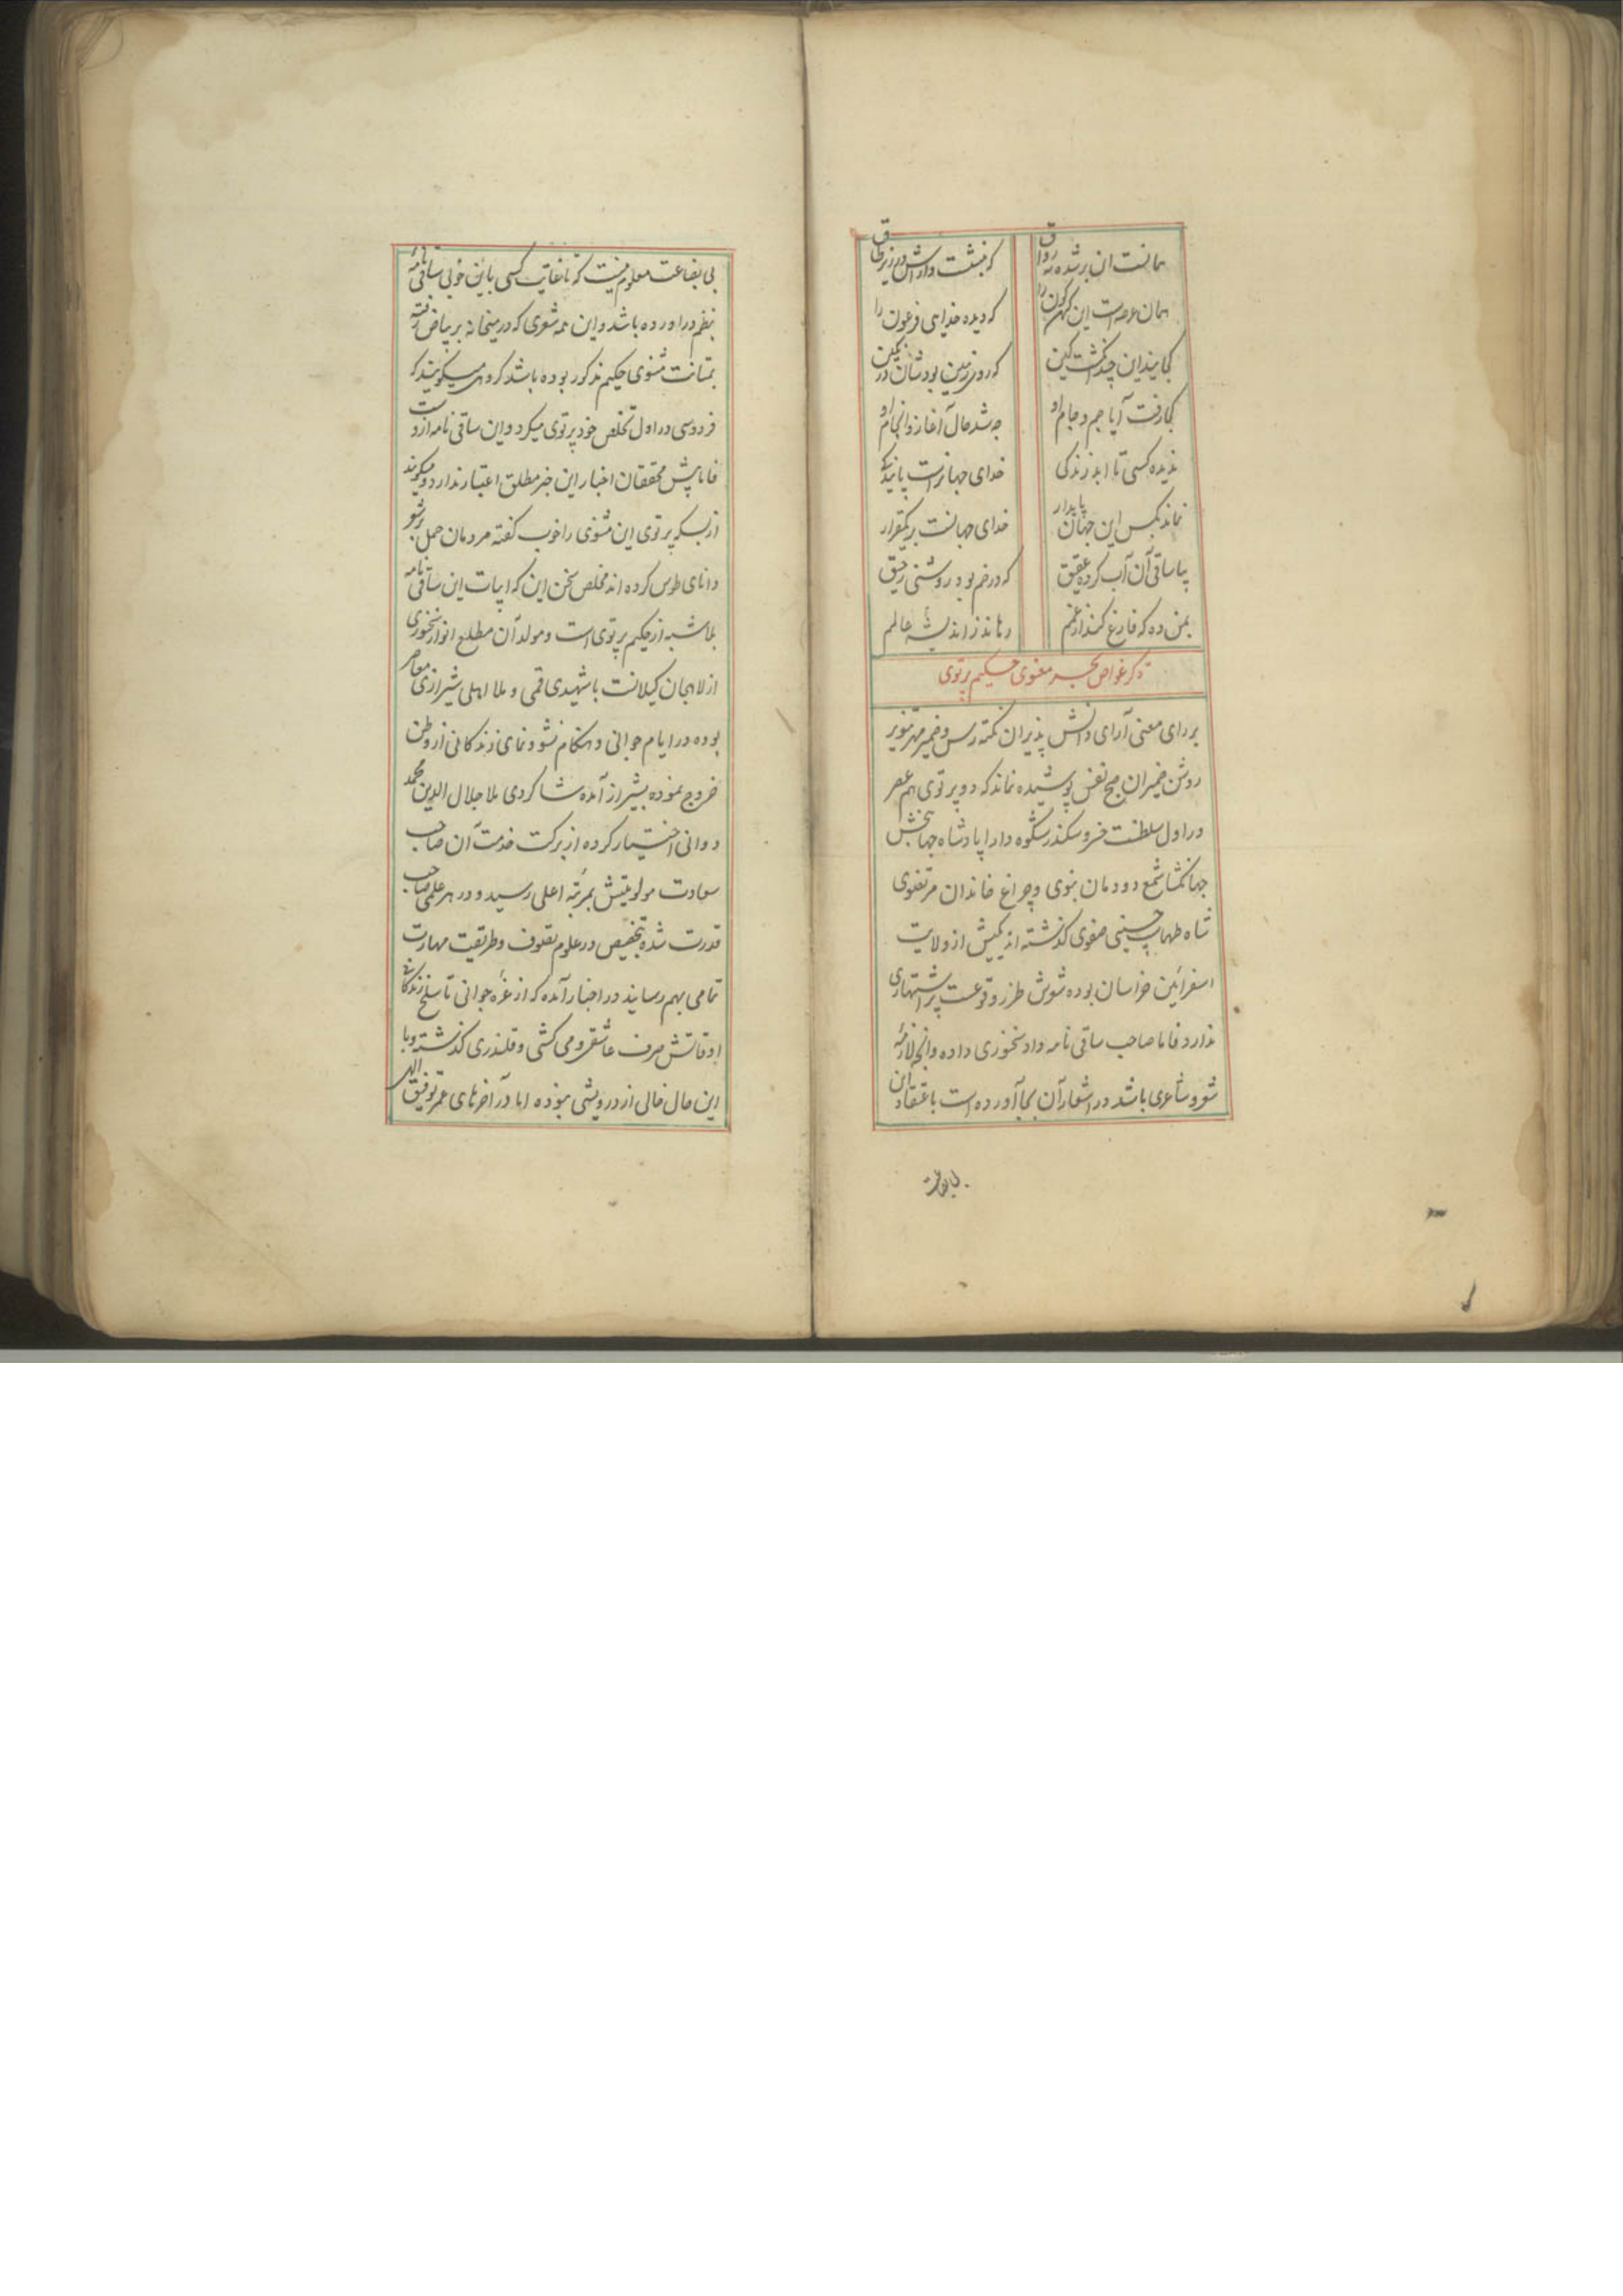 همانست ان بر شده نه رواق
که بنشست داراش در زیر طاق
همان عرصه است این کهن کون را
که دیده خدایی فرعون را
کجایند این چند کشت کین
که روی زمین بودشان در نکین
کجا رفت آیا جم و جام او
چه شد حال آغاز و انجام او
ندیده کسی تا ابد زندکی
خدای جهانراست پایندکی
نماند بکس این جهان پایدار
خدای جهانست بر یکقرار
بیا ساقی آن آب کرده عقیق
که در خم بود روشنی رحیق
بمن ده که فارغ کند از غمم
رهاند ز اندیشه عالمم
ذکر غواص بحر معنوی حکیم پرتوی
بر رای معنی آرای دانش پذیران نکته رس و ضمیر مهر تنویر
روشن ضمیران صبح نفس پوشیده نماند که دو پرتوی هم عصر
در اول سلطنت خسرو سکندر شکوه دارا پادشاه جهانبخش
جهانکشا شمع دودمان نبوی و چراغ خاندان مرتضوی
شاه طهماسب حسینی صفوی کذشته اند یکیش از ولایت
اسفراین خراسان بوده شعرش طرز وقوعست پر اشتهاری
ندارد فاما صاحب ساقی نامه داد سخنوری داده و آنچه لازمه
شعر و شاعری باشد در اشعار آن بجا آورده است باعتقاد این
بی بضاعت معلوم نیست که تا غایت کسی باین خوبی ساقی نامهٔ
بنظم در اورده باشد و این همه شعری که در میخانه بر بیاض رفته
بمتانت مثنوی حکیم مذکور بوده باشد کروهی میکویند که
فردوسی در اول تخلص خود پرتوی میکرد و این ساقی نامه ازوست
فاما پیش محققان اخبار این خبر مطلق اعتبار ندارد و میکویند
از بسکه پرتوی این مثنوی را خوب کفته مردمان حمل بر شعر
دانای طوس کرده اند مخلص سخن این که ابیات این ساقی نامه
بلا شبه از حکیم پرتوی است و مولد آن مطلع انوار سخنوری
از لاهیجان کیلانست با شهیدی قمی و ملا اهلی شیرازی معاصر
بوده در ایام جوانی و هنکام نشو و نمای زندکانی از وطن
خروج نموده بشیراز آمده شاکردی ملا جلال الدین محمد
دوانی اختیار کرده از برکت خدمت آن صاحب
سعادت مولویتش بمرتبه اعلی رسید و در هر علمی صاحب
قدرت شده بتخصیص در علوم تصوف و طریقت مهارت
تمامی بهم رسانید در اخبار آمده که از غرهٔ جوانی تا سلخ زندکانی
اوقاتش صرف عاشقی و می کشی و قلندری کذشته و با
این حال خالی از درویشی نبوده اما در آخرهای عمر توفیق الهی